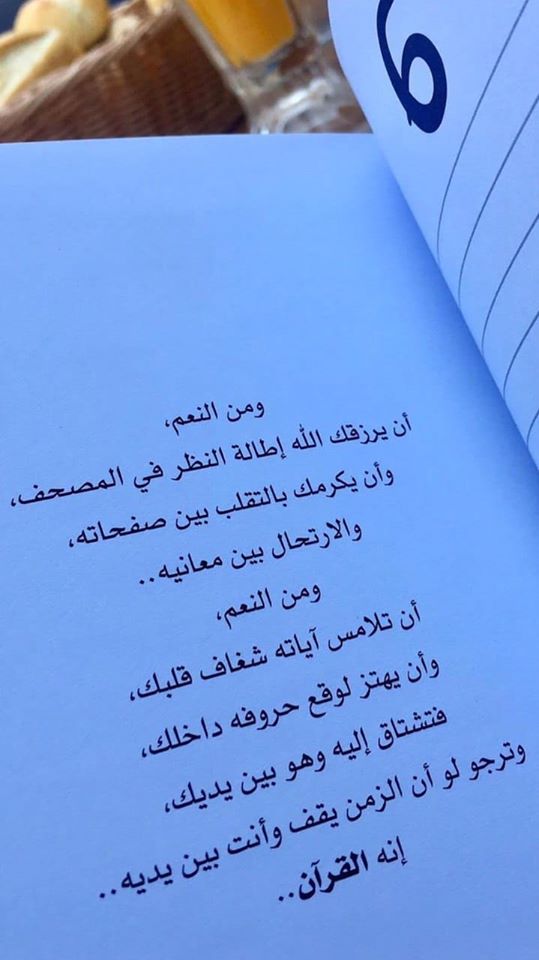 ومن النعم،
أن يرزقك الله إطالة النظر في المصحف،
وأن يكرمك بالتقلب بين صفحاته،
والارتحال بين معانيه..
ومن النعم،
أن تلامس آياته شغاف قلبك،
وأن يهتز لوقع حروفه داخلك،
فتشتاق إليه وهو بين يديك،
وترجو لو أن الزمن يقف وأنت بين يديه..
إنه القرآن..